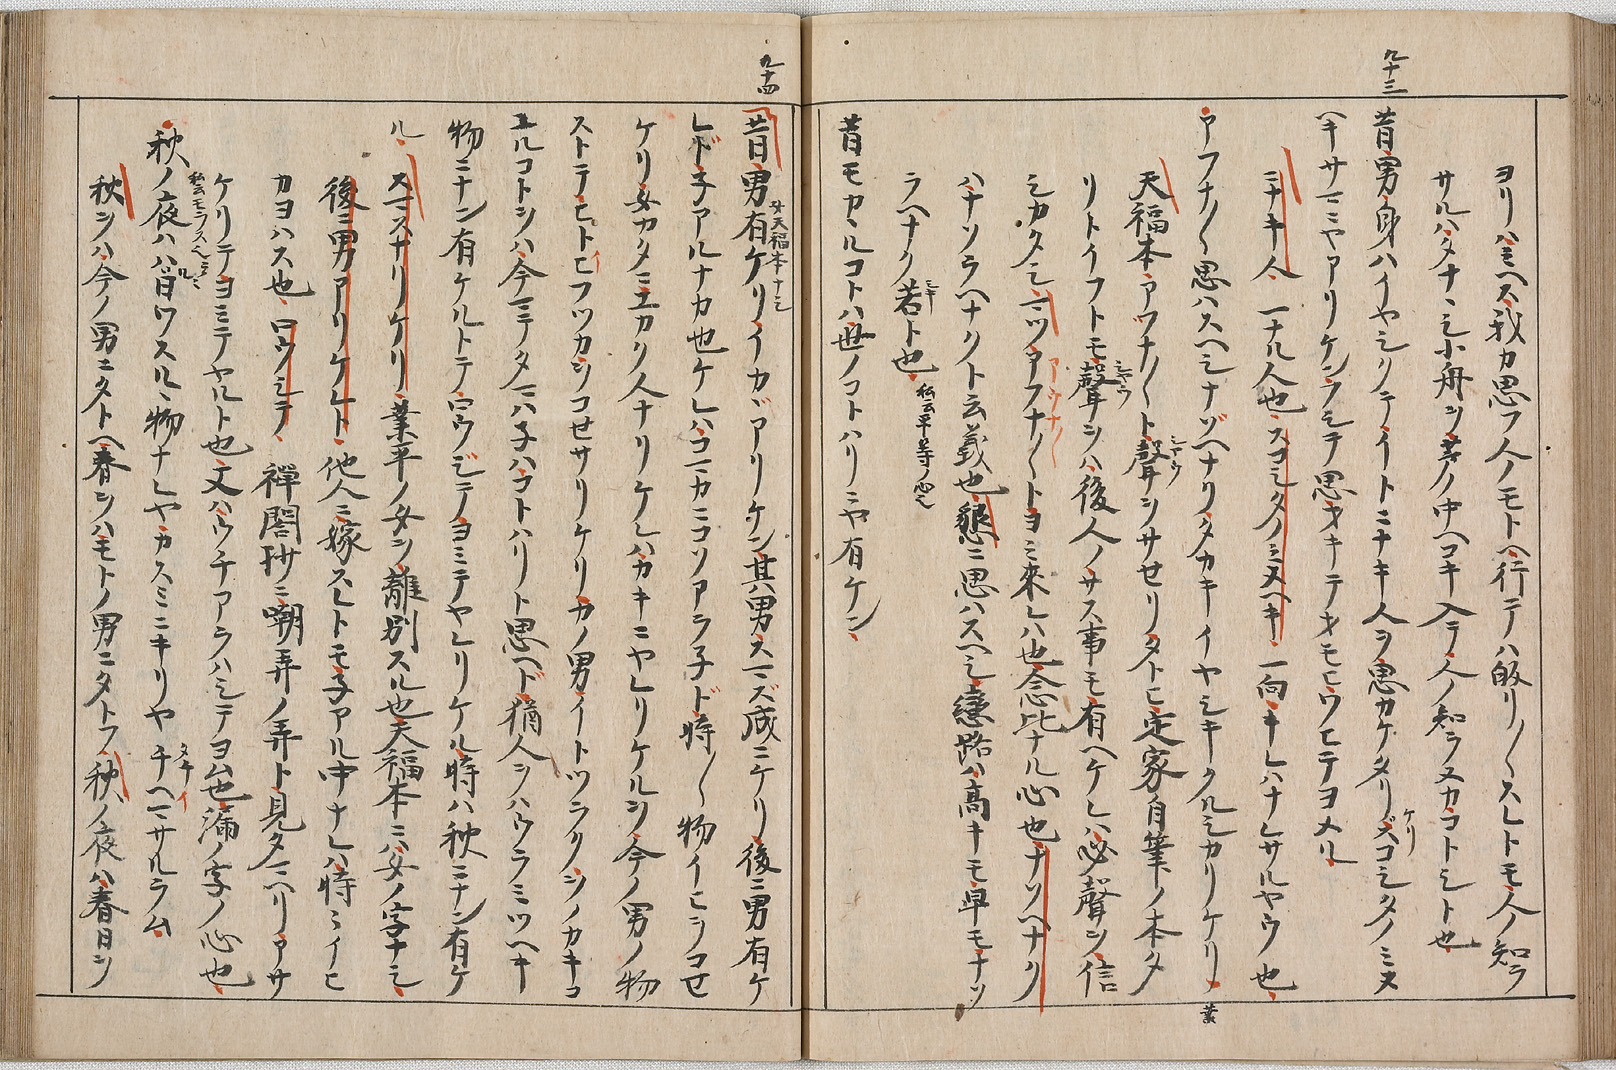 九十三
ヨリハミヘス我カ思フ人ノモトヘ行テハ皈リ〱スレトモ人ノ知ラ
サルハタナヽシ小舟ヲ芦ノ中ヘコキ入テ人ノ知ラヌカコトシト也
昔男身ハイヤシクテイトニナキ人ヲ思カケタリケリスコシタノミヌ
ヘキサマニヤアリケンフシテ思オキテオモヒワヒテヨメル
ニナキ人 一ナル人也スコシタノミヌヘキ 一向キレハナレサルヤウ也
アフナ〱思ハスヘシナソヘナクタカキイヤシキクルシカリケリ
天福本アフナ〱ト聲ヲサセリタトヒ定家自筆ノ本タ
リトイフトモ聲ヲハ後人ノサス事モ有ヘケレハ必聲ヲ信
シカタシ一ツアフナ〱トヨミ來レハ也念比ナル心也ナソヘナク
ハナソラヘナクト云義也懇ニ思ハスヘシ戀路ハ高キモ卑モナソ
ラヘナク若ト也 私云平等ノ心也
昔モカヽルコトハ世ノコトハリニヤ有ケン
九十四
昔男有ケリイカヽアリケン其男スマズ成ニケリ後ニ男有ケ
才天福本ナシ
レド子アルナカ也ケレハコマカニコソアラネド時〱物イヒヲコセ
ケリ女カタニエカク人ナリケレハカキニヤレリケルヲ今ノ男ノ物
ストテヒトヒフツカヲコセサリケリカノ男イトツラクヲノカキコ
ユルコトヲハ今マテタマハ子ハコトハリト思ヘド猶人ヲハウラミツヘキ
物ニナン有ケルトテロウジテヨミテヤレリケル時ハ秋ニナン有ケ
ル スマスナリケリ 業平ノ女ヲ離別スル也天福本ニハ女ノ字ナシ
後ニ男アリケレト 他人ニ嫁スレトモ子アル中ナレハ時ミイヒ
カヨハス也 ロウシテ 禅閤抄ニ嘲弄ノ弄ト見タマヘリアサ
ケリテヨミテヤルト也文ハウチアラハシテヨム也漏ノ字ノ心也
秋ノ夜ハ春日ワスルヽ物ナレヤカスミニキリヤチヘマサルラム
秋ヲハ今ノ男ニタトヘ春ヲハモトノ男ニタトフ秋ノ夜ハ春日ヲ